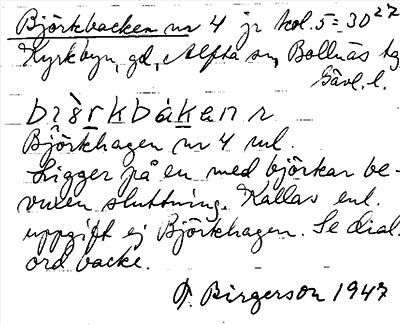 Björkbacken nr 4 jr kol. 5 = 30²²
Kyrkbyn, gd, Alfta sn, Bollnäs tg
Gävl. l.
bìȧ̀rkbàkɐn ɿ
Björkhagen nr 4 url.
Ligger på en med björkar be-
vuxen sluttning. Kallas enl.
uppgift ej Björkhagen. Se dial.
ord backe.
P. Birgerson 1947